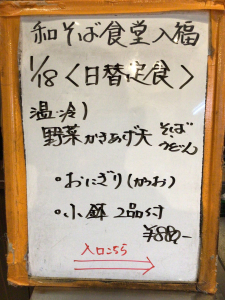 和そば食堂入福
1/18〈日替定食〉
温・冷)
野菜かきあげ天 そば・うどん
・おにぎり(かつお)
・小鉢2品付
¥880-
入口こちら